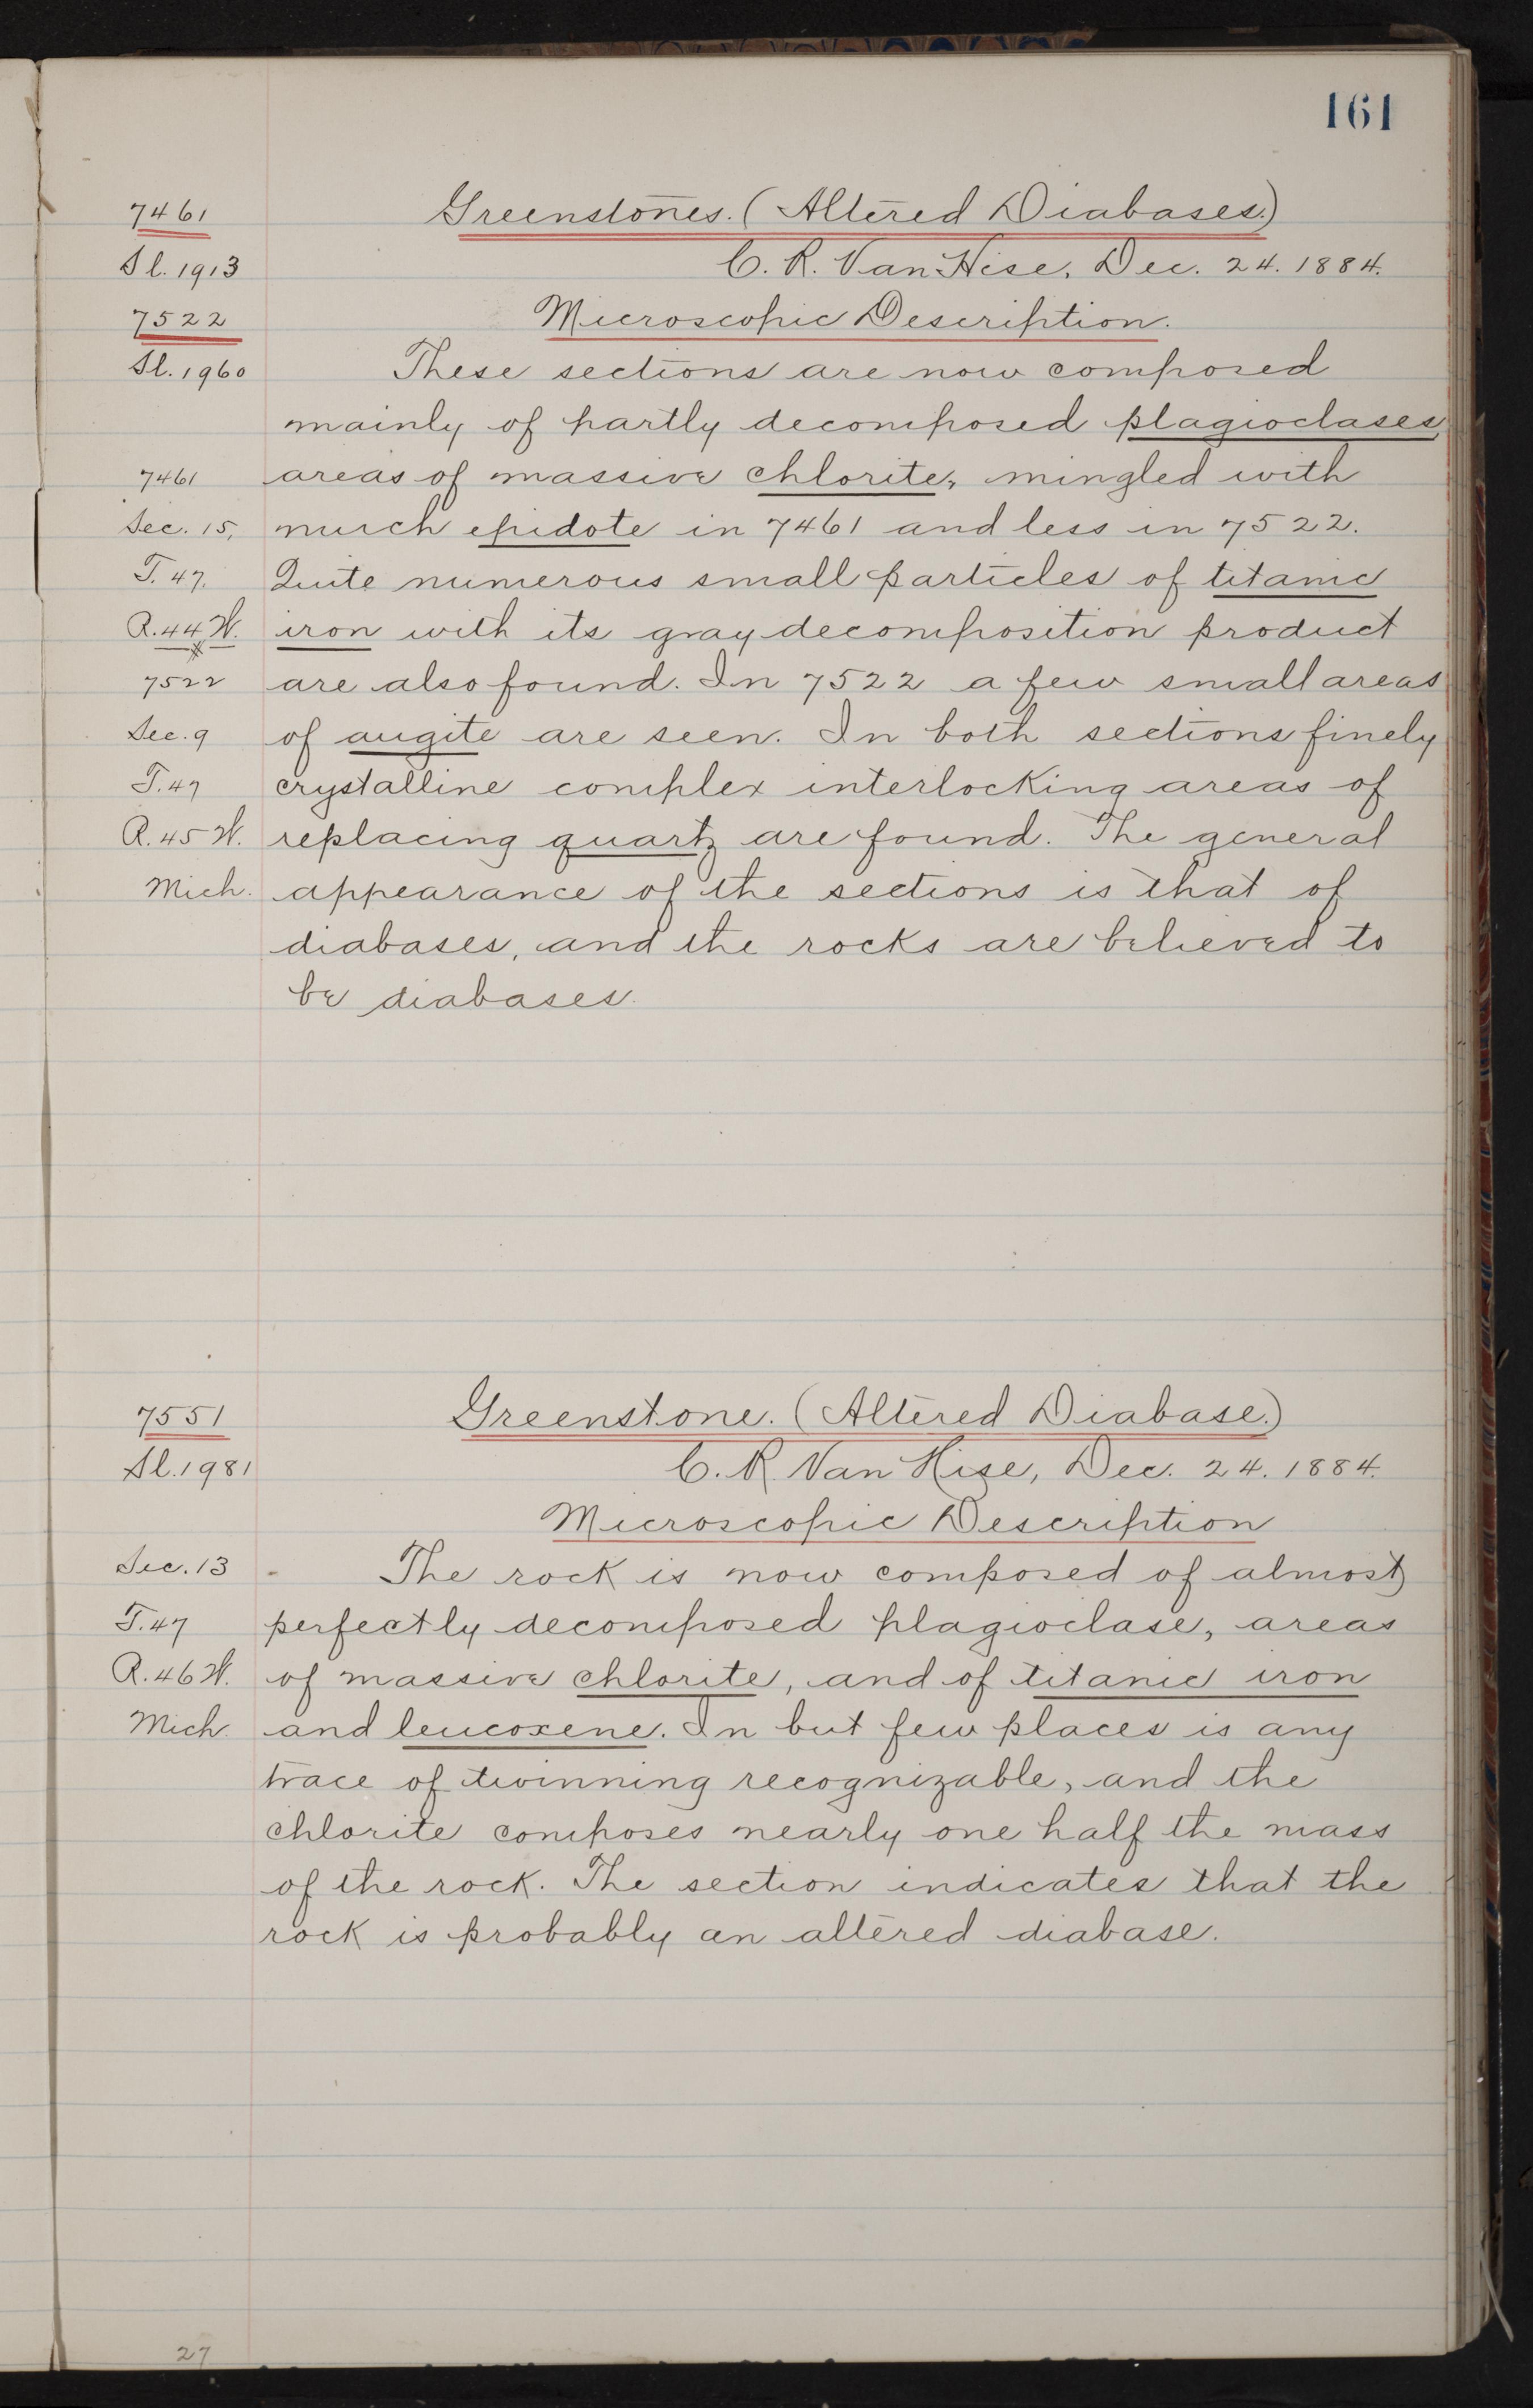 161
7461 Greenstones. (Altered Diabases.)
Sl. 1913 C. R. Van Hise, Dec. 24. 1884.
7522 Microscopic Description.
Sl. 1960 These sections are now composed
mainly of partly decomposed plagioclases,
7461 areas of massive chlorite, mingled with
Sec. 15, much epidote in 7461 and less in 7522.
T. 47. Quite numerous small particles of titanic
R. 44 W. iron with its gray decomposition product
7522 are also found. In 7522 a few small areas
Sec. 9 of augite are seen. In both sections finely
T. 47 crystalline complex interlocking areas of
R. 45 W. replacing quartz are found. The general
Mich. appearance of the sections is that of
diabases, and the rocks are believed to
be diabases.
7551 Greenstone. (Altered Diabase.)
Sl. 1981 C. R. Van Hise, Dec. 24. 1884.
Microscopic Description
Sec. 13 The rock is now composed of almost
T. 47 perfectly decomposed plagioclase, areas
R. 46 W. of massive chlorite, and of titanic iron
Mich. and leucoxene. In but few places is any
trace of twinning recognizable, and the
chlorite composes nearly one half the mass
of the rock. The section indicates that the
rock is probably an altered diabase.
27